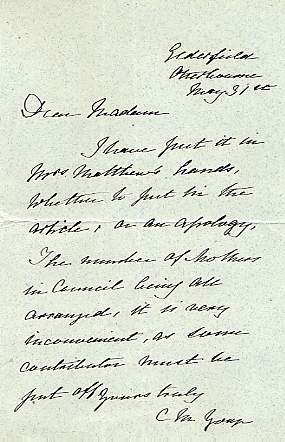 Elderfield
Otterbourne
May 31st
Dear Madam
I have put it in
Mrs Matthew's hands,
whether to put in the
article, or an apology,
The number of Mothers
in Council being all
arranged, it is very
inconvenient, as some
contributor must be
put off Yours truly
C M Yonge